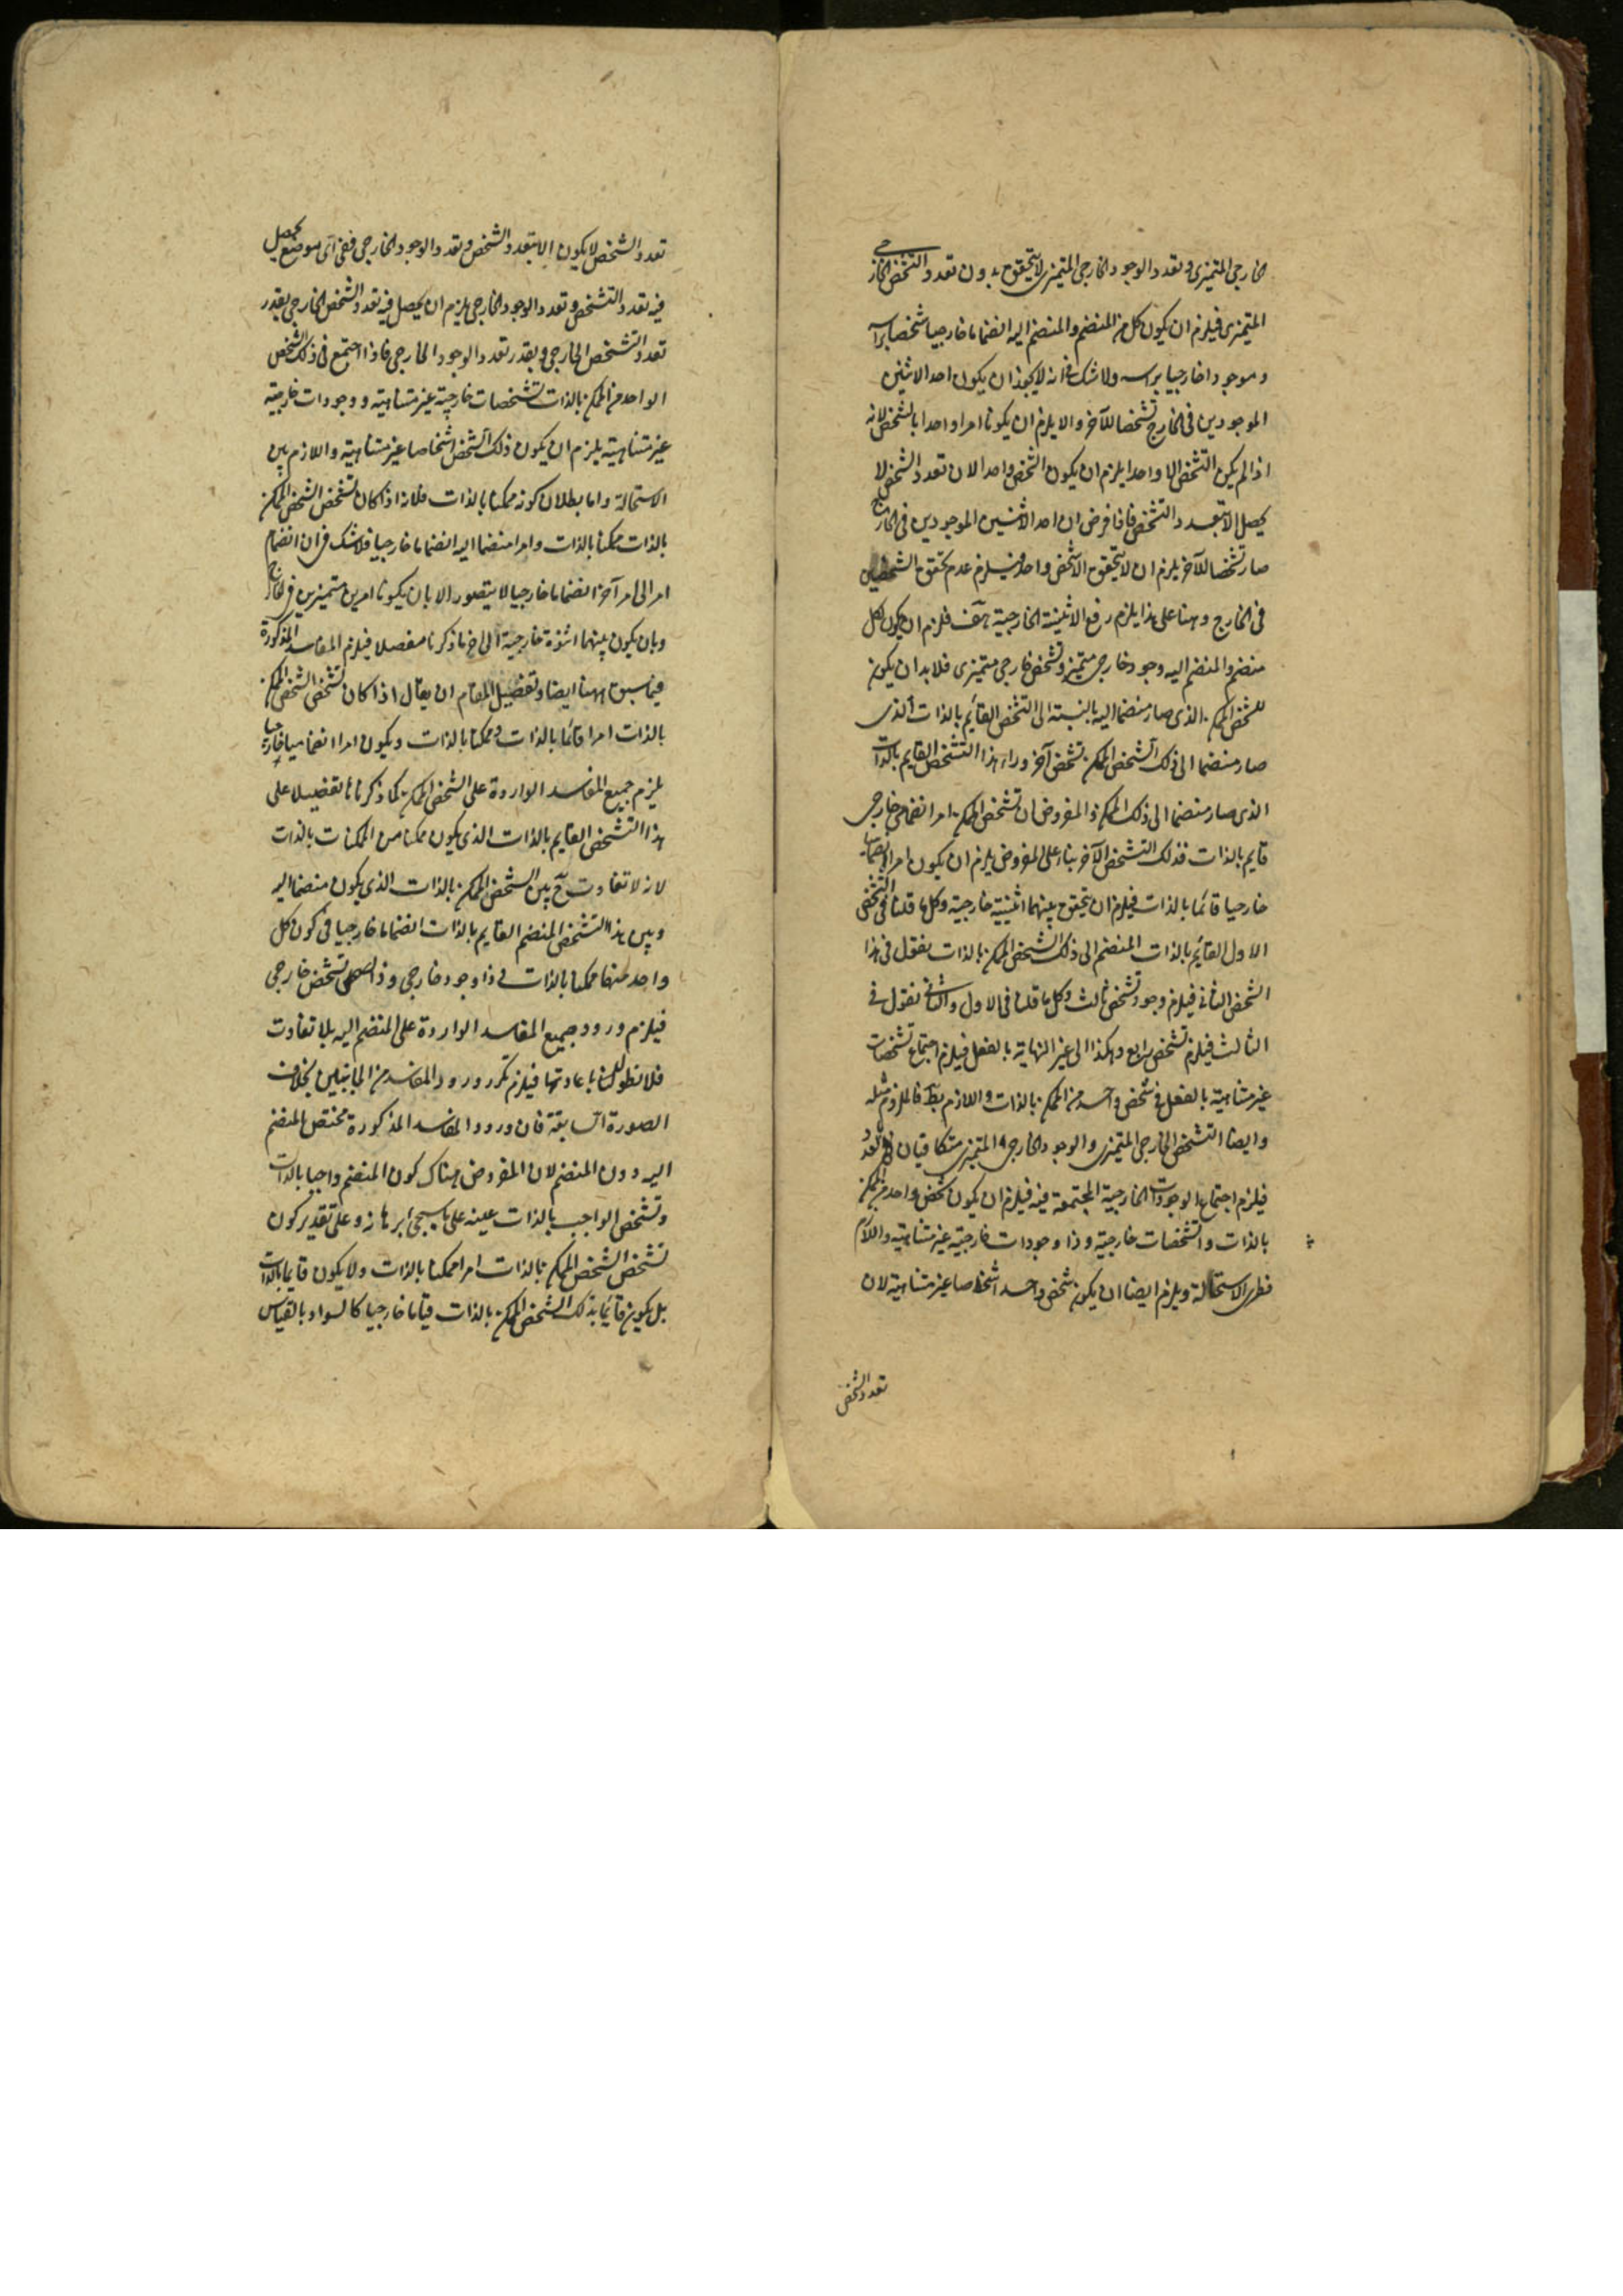 الخارجي المتميزي وتعدد الوجود الخارجي المتميزي لا يتحقق بدون تعدد التشخص الخارجي
المتميزي فيلزم ان يكون كل من المنضم والمنضم اليه انضماما خارجيا شخصا براسه
وموجودا خارجيا براسه ولا شك في انه لا يجوز ان يكون احد الاثنين
الموجودين في الخارج تشخصا للآخر والا يلزم ان يكونا امرا واحدا بالشخص لانه
اذا لم يكن التشخص الا واحدا يلزم ان يكون الشخص واحدا لان تعدد الشخص لا
يحصل الا بتعدد التشخص فاذا فرض ان احد الاثنين الموجودين في الخارج
صار تشخصا للآخر يلزم ان لا يتحقق الا شخص واحد فيلزم عدم تحقق الشخصين
في الخارج وهنا على هذا يلزم رفع الاثنينية الخارجية هف فلزم ان يكون لكل
منضم والمنضم اليه وجود خارجي متميز وتشخص خارجي متميزي فلا بد ان يكون
للشخص الممكن الذي صار منضما اليه بالنسبة الى التشخص القائم بالذات الذي
صار منضما الى ذلك الشخص الممكن تشخص آخر وراء هذا التشخص القايم بالذات
الذي صار منضما الى ذلك الممكن والمفروض ان تشخص الممكن امر انضمامي خارجي
قايم بالذات فذلك التشخص الآخر بناء على المفروض يلزم ان يكون امرا انضماميا
خارجيا قائما بالذات فيلزم ان يتحقق بينهما اثنينية خارجية وكل ما قلنا في التشخص
الاول القائم بالذات المنضم الى ذلك الشخص الممكن بالذات نقول في هذا
الشخص الثاني فيلزم وجود تشخص ثالث وكل ما قلنا في الاول والثاني نقول في
الثالث فيلزم تشخص رابع وهكذا الى غير النهاية بالفعل فيلزم اجتماع تشخصات
غير متناهية بالفعل في شخص واحد من الممكن بالذات واللازم بط فالملزوم مثله
وايضا التشخص الخارجي المتميزي والوجود الخارجي المتميزي متكافيان في التعدد
فيلزم اجتماع الوجودات الخارجية المجتمعة فيه فيلزم ان يكون شخص واحد من الممكن
بالذات ذا تشخصات خارجية وذا وجودات خارجية غير متناهية واللازم
فظهر الاستحالة ويلزم ايضا ان يكون شخص واحد اشخاصا غير متناهية لان
تعدد الشخص
تعدد الشخص لا يكون الا بتعدد التشخص وتعدد الوجود الخارجي ففي اي موضع يحصل
فيه تعدد التشخص وتعدد الوجود الخارجي يلزم ان يحصل فيه تعدد الشخص الخارجي بقدر
تعدد التشخص الخارجي وبقدر تعدد الوجود الخارجي فاذا اجتمع في ذلك الشخص
الواحد من الممكن بالذات تشخصات خارجية غير متناهية ووجودات خارجية
غير متناهية يلزم ان يكون ذلك الشخص اشخاصا غير متناهية واللازم بين
الاستحالة واما بطلان كونه ممكنا بالذات فلانه اذا كان تشخص الشخص الممكن
بالذات ممكنا بالذات وامرا منضما اليه انضماما خارجيا فلا شك في ان انضمام
امر الى امر آخر انضماما خارجيا لا يتصور الا بان يكونا امرين متميزين في الخارج
وبان يكون بينهما اثنوة خارجية الى اخ ما ذكرنا مفصلا فيلزم المفاسد المذكورة
فيما سبق ههنا ايضا وتفصيل المقام ان يقال اذا كان تشخص الشخص الممكن
بالذات امرا قائما بالذات وممكنا بالذات ويكون امرا انضماميا خارجيا
يلزم جميع المفاسد الواردة على الشخص الممكن كما ذكرنا تفصيلا على
هذا التشخص القايم بالذات الذي يكون ممكنا من الممكنات بالذات
لانه لا تفاوت ح بين الشخص الممكن بالذات الذي يكون منضما اليه
وبين هذا التشخص المنضم القايم بالذات انضماما خارجيا في كون كل
واحد منهما ممكنا بالذات وذا وجود خارجي وذا تشخص خارجي
فيلزم ورود جميع المفاسد الواردة على المنضم اليه بلا تفاوت
فلا نطول الكلام باعادتها فيلزم تكرر ورود المفاسد من الجانبين بخلاف
الصورة السابقة فان ورود المفاسد المذكورة مختص بالمنضم
اليه دون المنضم لان المفروض هناك كون المنضم واجبا بالذات
وتشخص الواجب بالذات عينه على ما سيجئ برهانه وعلى تقدير كون
تشخص الشخص الممكن بالذات امرا ممكنا بالذات ولا يكون قايما بالذات
بل يكون قائما بذلك الشخص الممكن بالذات قياما خارجيا كالسواد بالقياس